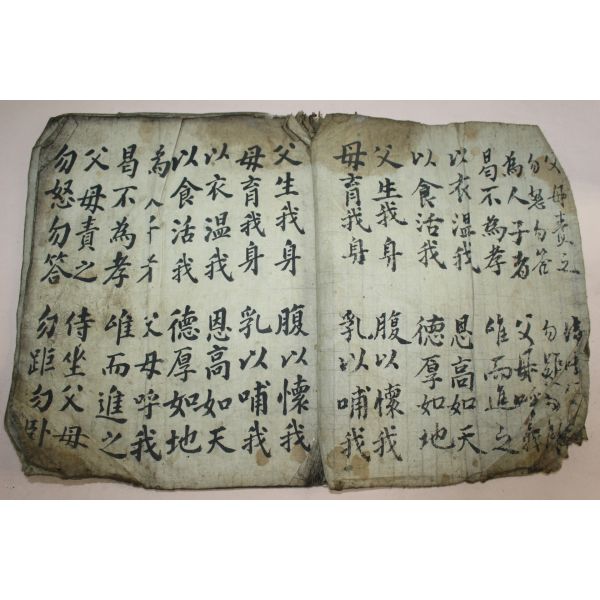 父母責之 侍坐父母
勿怒勿答 勿距勿卧
為人子者 父母呼我
曷不為孝 唯而進之
以衣溫我 恩高如天
以食活我 德厚如地
父生我身 腹以懷我
母育我身 乳以哺我
父生我身 腹以懷我
母育我身 乳以哺我
以衣溫我 恩高如天
以食活我 德厚如地
為人子者 父母呼我
曷不為孝 唯而進之
父母責之 侍坐父母
勿怒勿答 勿距勿卧